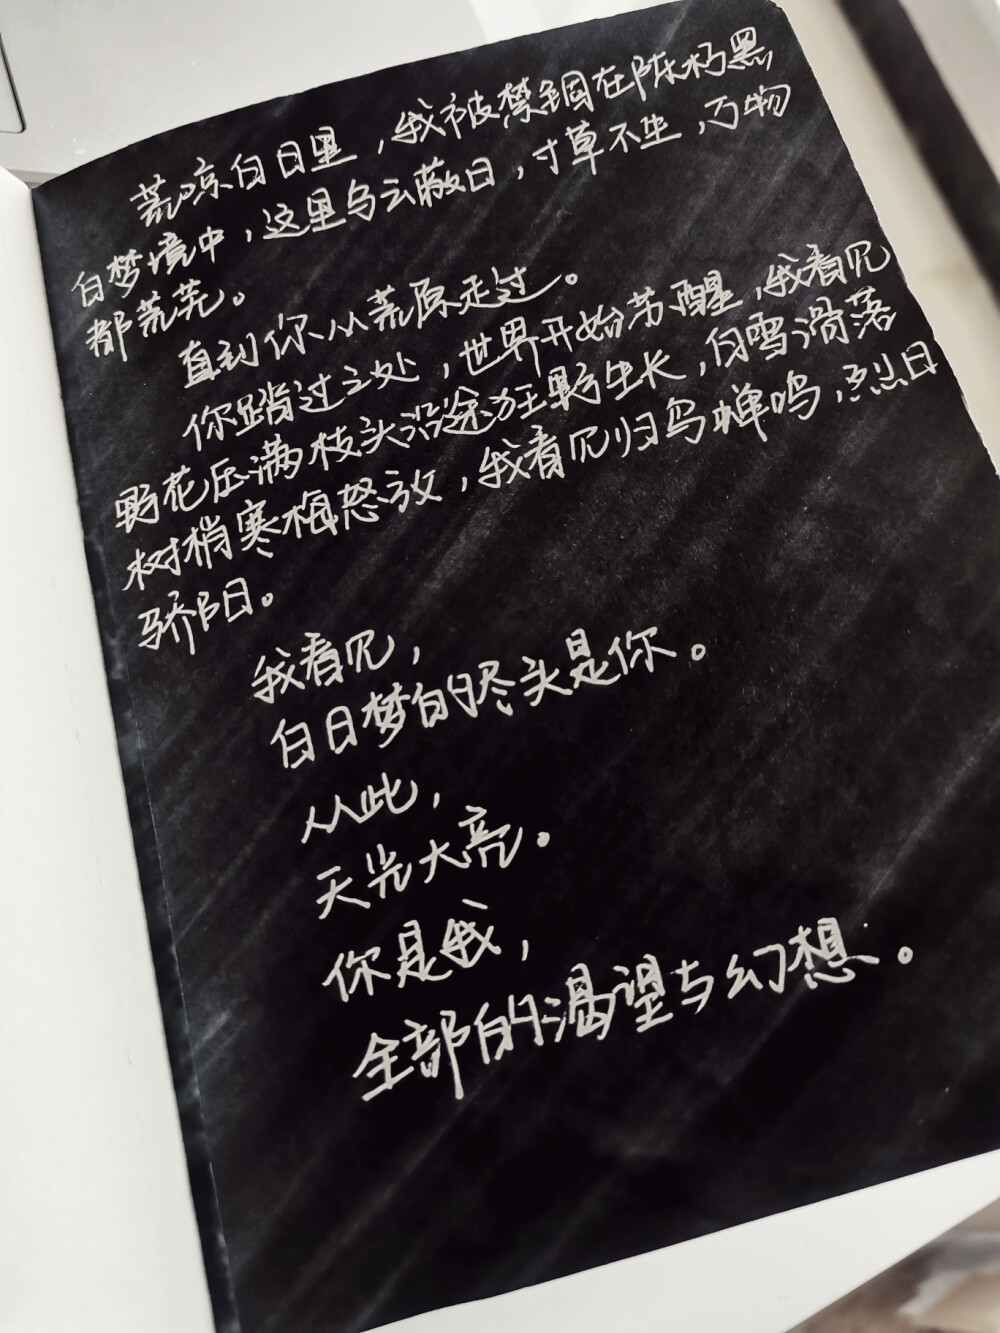 荒凉白日里，我被禁锢在陈朽黑
白梦境中，这里乌云蔽日，寸草不生，万物
都荒芜。
直到你从荒原走过。
你踏过之处，世界开始苏醒，我看见
野花压满枝头沿途狂野生长，白雪滑落
树梢寒梅怒放，我看见归鸟蝉鸣，烈日
骄阳。
我看见，
白日梦的尽头是你。
从此，
天光大亮。
你是我，
全部的渴望与幻想。